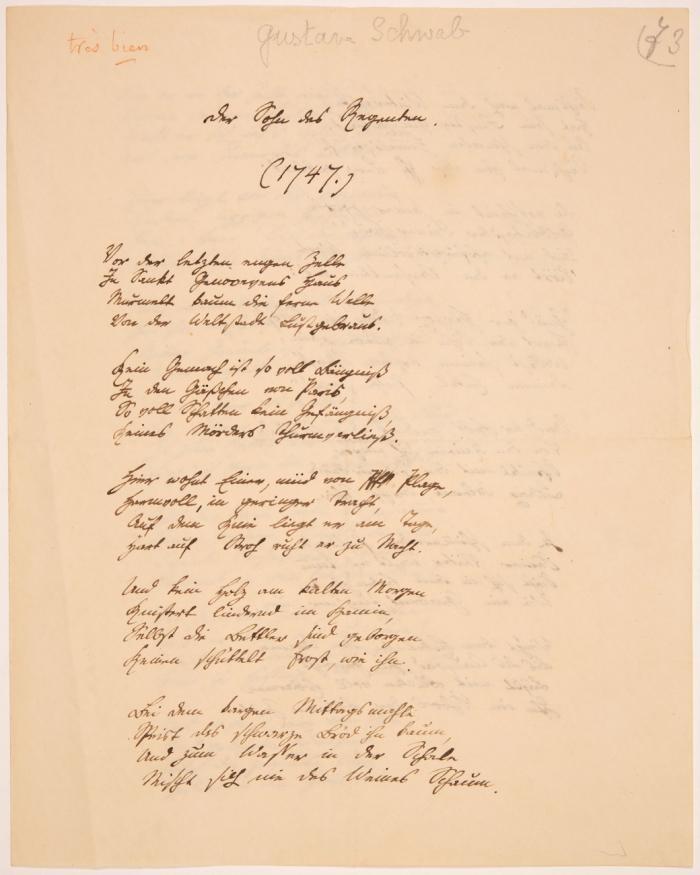 très bien
Gustav Schwab
73
Der Sohn des Regenten.
(1747.)
Vor der letzten engen Zelle
In Sankt Genovevens Haus
Murmelt kaum die ferne Welle
Von der Weltstadt Lustgebraus.
Kein Gemach ist so voll Bängniß
In den Gäßchen von Paris,
So voll Schatten kein Gefängniß,
Keines Mörders Thurmverließ.
Hier wohnt Einer, müd von Plage,
Harmvoll, in geringer Tracht,
Auf dem Knie liegt er am Tage,
Hart auf Stroh ruht er zu Nacht.
Und kein Holz am kalten Morgen
Knistert lindernd im Kamin,
Selbst die Bettler sind geborgen
Keinen schüttelt Frost, wie ihn.
Bei dem kargen Mittagsmahle
Speist das schwarze Brod ihn kaum,
Und zum Wasser in der Schale
Mischt sich nie des Weines Schaum.